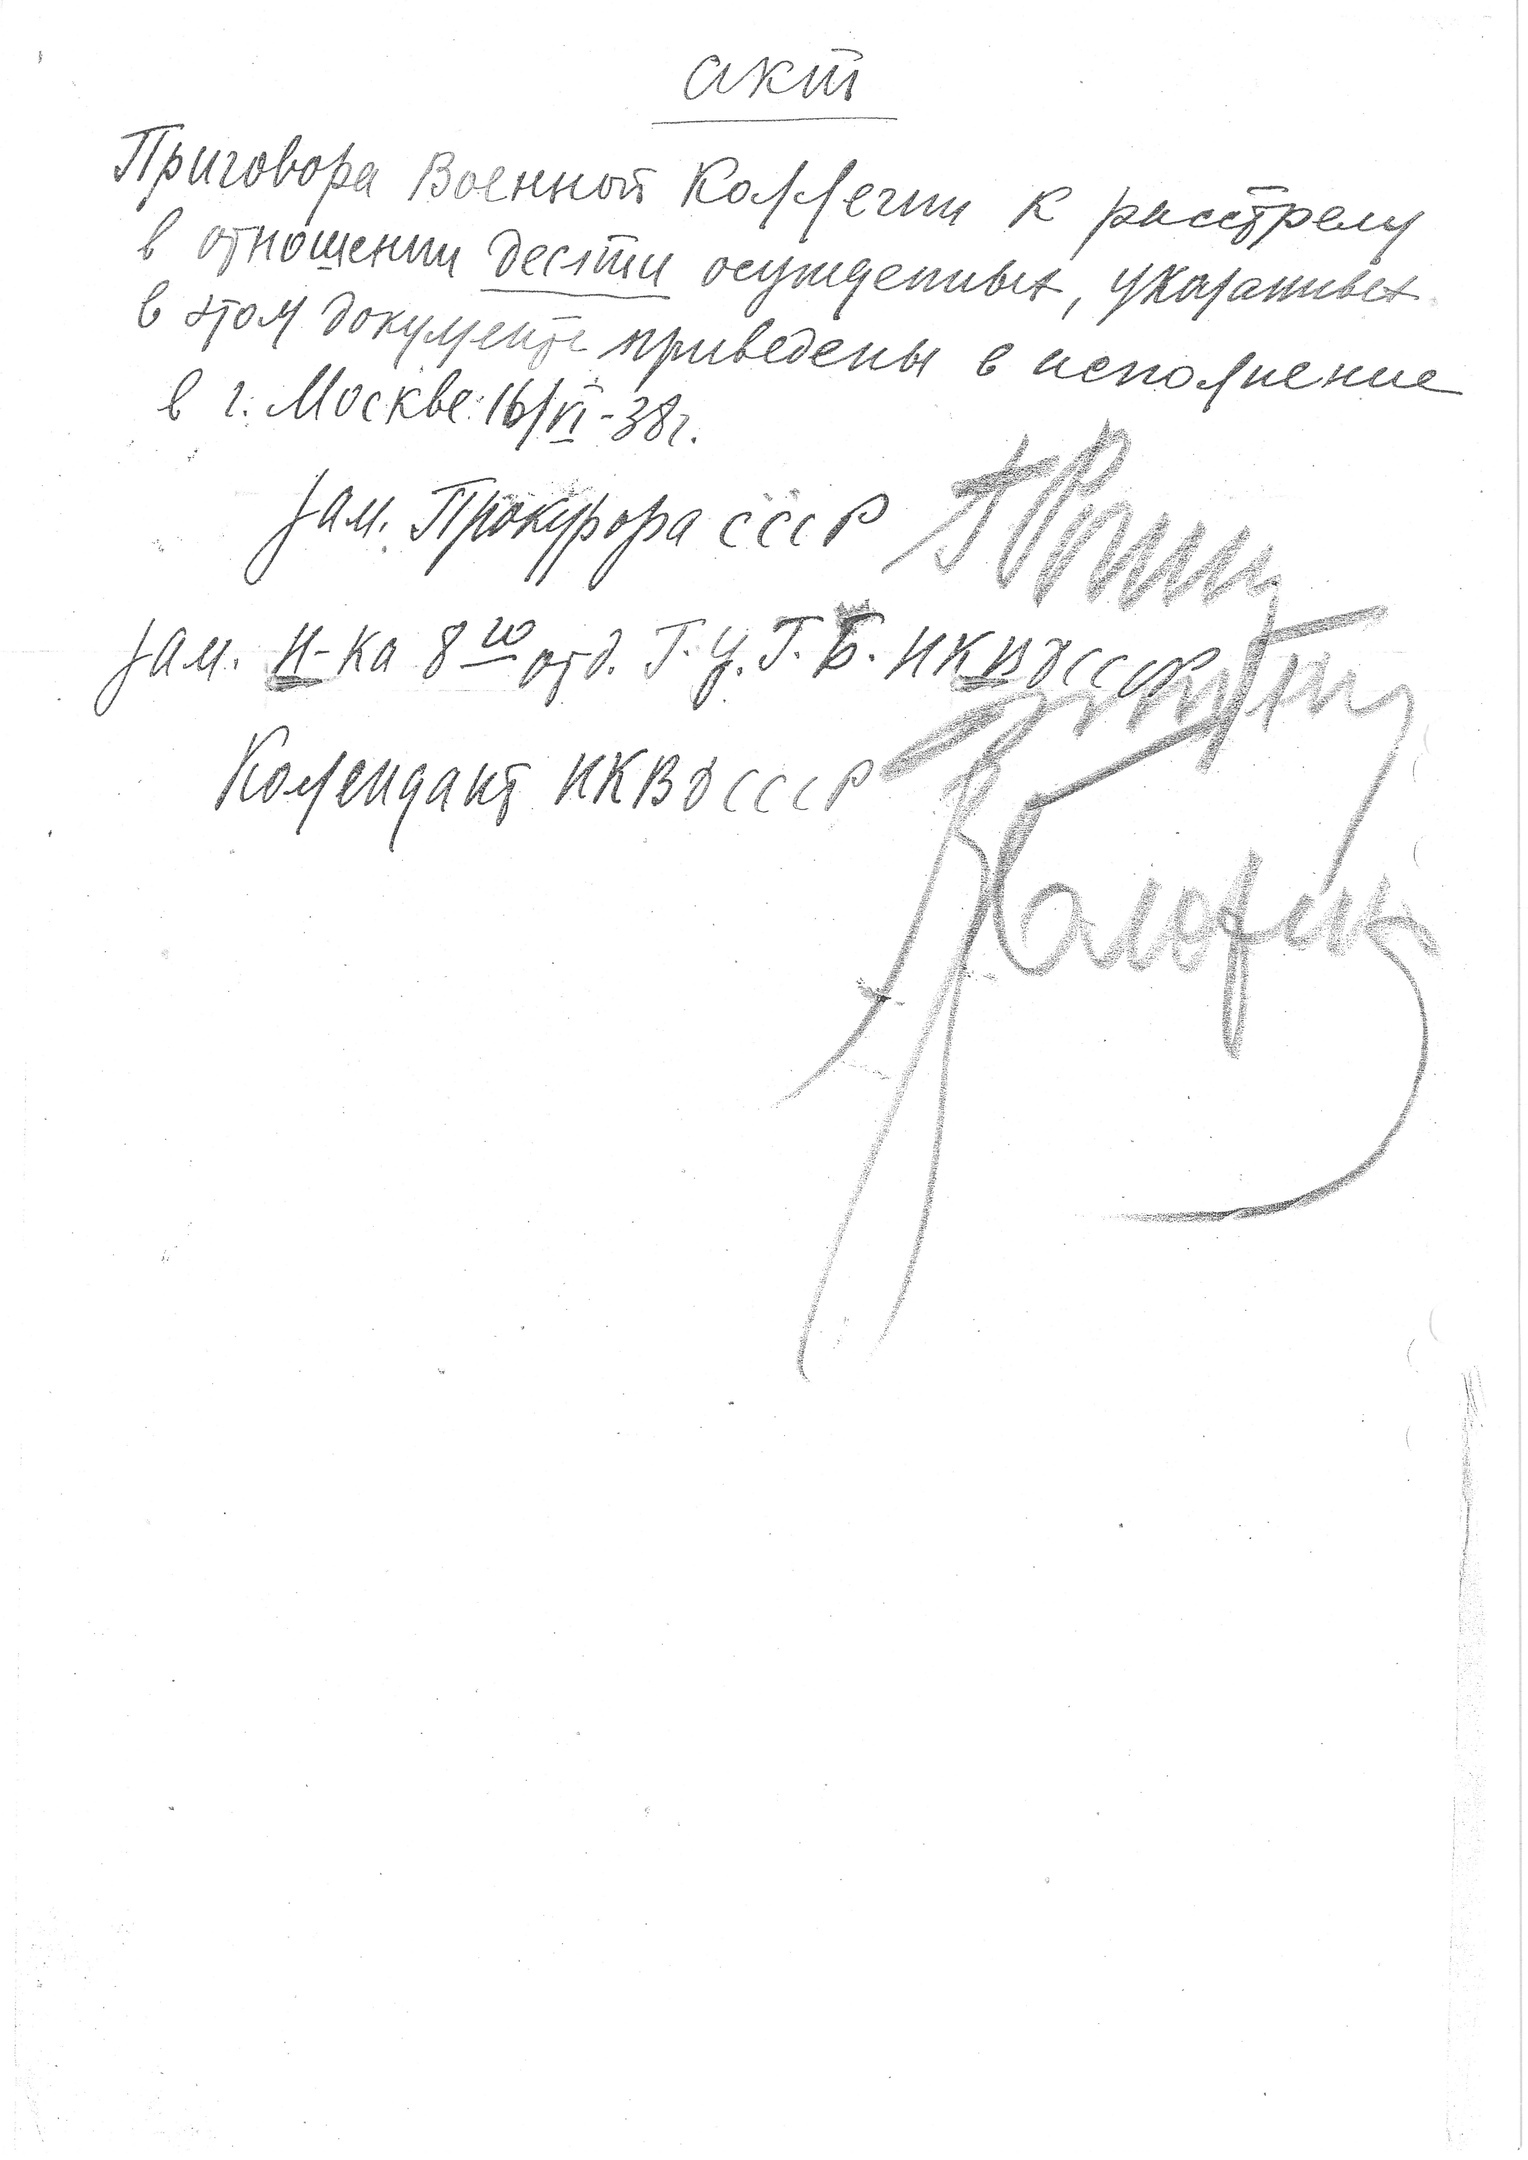 акт
Приговора Военной Коллегии к расстрелу
в отношении десяти осужденных, указанных
в этом документе приведены в исполнение
в г. Москве 16/VI-38г.
Зам. Прокурора СССР
Зам. Н-ка 8го отд. Г.У.Г.Б. НКВД СССР
Комендант НКВД СССР